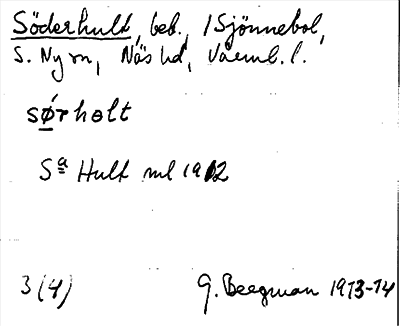 Söderhult, beb., /Sjönnebol,
S. Ny sn, Näs hd, Värml. l.
sǿrholt
Sª Hult ml 1912
3 (4)
G. Bergman 1973-74